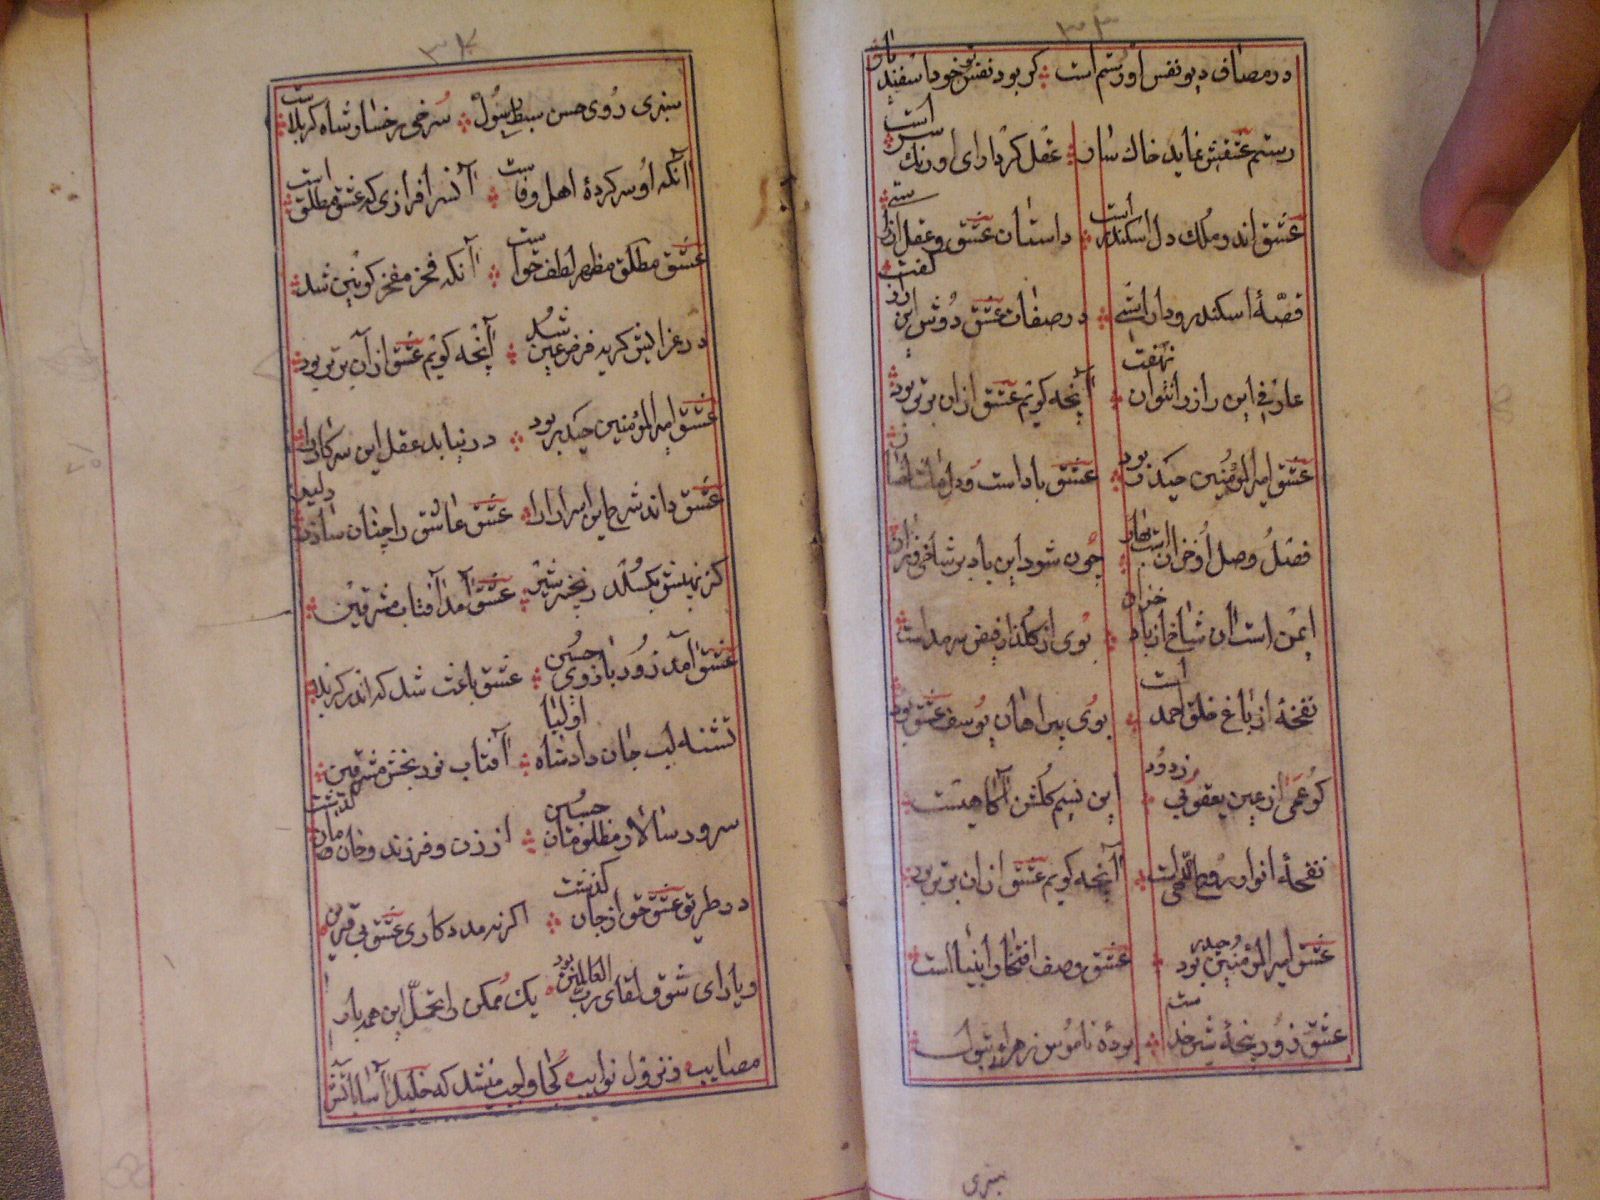 ۳۳
در مصاف دیو نفس او رستم است کر بود نفس تو خود اسفندیاف
رستم عشقش نماید خاکسار عقل کر دارای اورنک سر است
عشق اند و ملک دل اسکندر است داستان عشق و عقل از
قصهٔ اسکندر و دارا ستی در صفات عشق دوش این راز گفت
عارفی این راز را نتوان نهفت آنچه کویم عشق از ان برتر بود
عشق امیر المؤمنین حیدر بود عشق باد است و دل
فصل وصل او خزان است بهار چون شود این باد بر شاخی وزان
ایمن است ان شاخ از باد خزان بوی از کلذار فیض سرمد است
نفخهٔ از باغ خلق احمد است بوی پیراهان یوسف عشق بود
کو عمی از عین یعقوبی زدود این نسیم کلشن آکاهیست
نفحهٔ انوار روح اللهی است آنچه کویم عشق از ان برتر بود
عشق امیر المؤمنین حیدر بود عشق وصف افتخار انبیا است
عشق زور پنجهٔ شیر خداست بودهٔ ناموس زهراء بتول
سبزی
۳۴
سبزی روی حسن سبط رسول سرخی رخسار شاه کربلاست
آنکه او سرکردهٔ اهل وفاست آنسر افرازی که عشق مطلق است
عشق مطلق مظهر لطف حق است آنکه فخر مفخر کونین شد
در عزایش کریه فرض عین شد آنچه کویم عشق از آن برتر بود
عشق امیر المؤمنین حیدر بود در نیابد عقل این سر کار را
عشق داند شرح این اسرار را عشق عاشق را چنان سازد دلیر
کز نهیبش بکسلد زنجیر شیر عشق آمد آفتاب مشرقین
عشق آمد زور بازوی حسین عشق باعث شد که اندر کربلا
تشنه لب جان داد شاه اولیا آفتاب نور بخش مشرقین
سرور سالار مظلومان حسین از زن و فرزند و خان و مان کذشت
در طریق عشق حق از جان کذشت اکر نه مدد کاری عشق بی قرین
و یارای شوق لقای رب العالمین بود یک ممکن را تحمل این همه بار
مصایب و نزول نوایب کجا واجب میشد که خلیل آسا بآتش